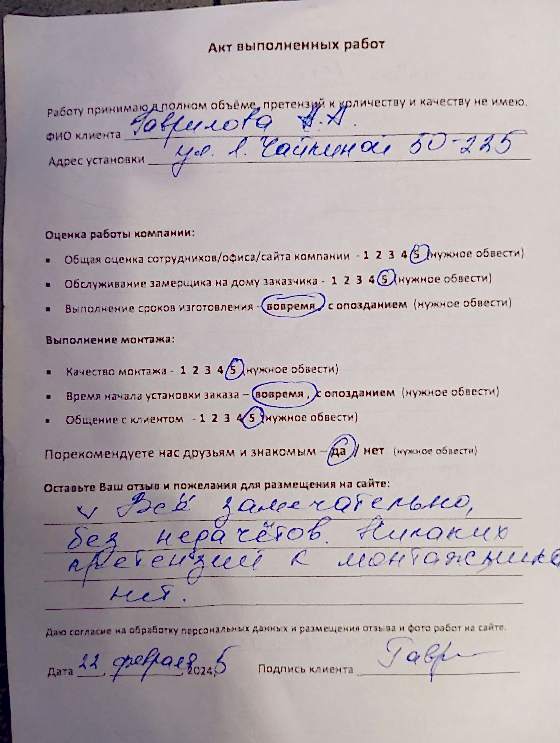 Акт выполненных работ
Работу принимаю в полном объёме, претензий к количеству и качеству не имею.
ФИО клиента Гаврилова А.А.
Адрес установки ул. Л. Чайкиной 50-225
Оценка работы компании:
• Общая оценка сотрудников/офиса/сайта компании - 1 2 3 4 5 (нужное обвести)
• Обслуживание замерщика на дому заказчика - 1 2 3 4 5 (нужное обвести)
• Выполнение сроков изготовления - вовремя, с опозданием (нужное обвести)
Выполнение монтажа:
• Качество монтажа - 1 2 3 4 5 (нужное обвести)
• Время начала установки заказа – вовремя, с опозданием (нужное обвести)
• Общение с клиентом - 1 2 3 4 5 (нужное обвести)
Порекомендуете нас друзьям и знакомым – да / нет (нужное обвести)
Оставьте Ваш отзыв и пожелания для размещения на сайте:
Всё замечательно,
без недочётов. Никаких
претензий к монтажникам
нит.
Даю согласие на обработку персональных данных и размещения отзыва и фото работ на сайте.
Дата 22 февраля 2024 5 Подпись клиента Гавр